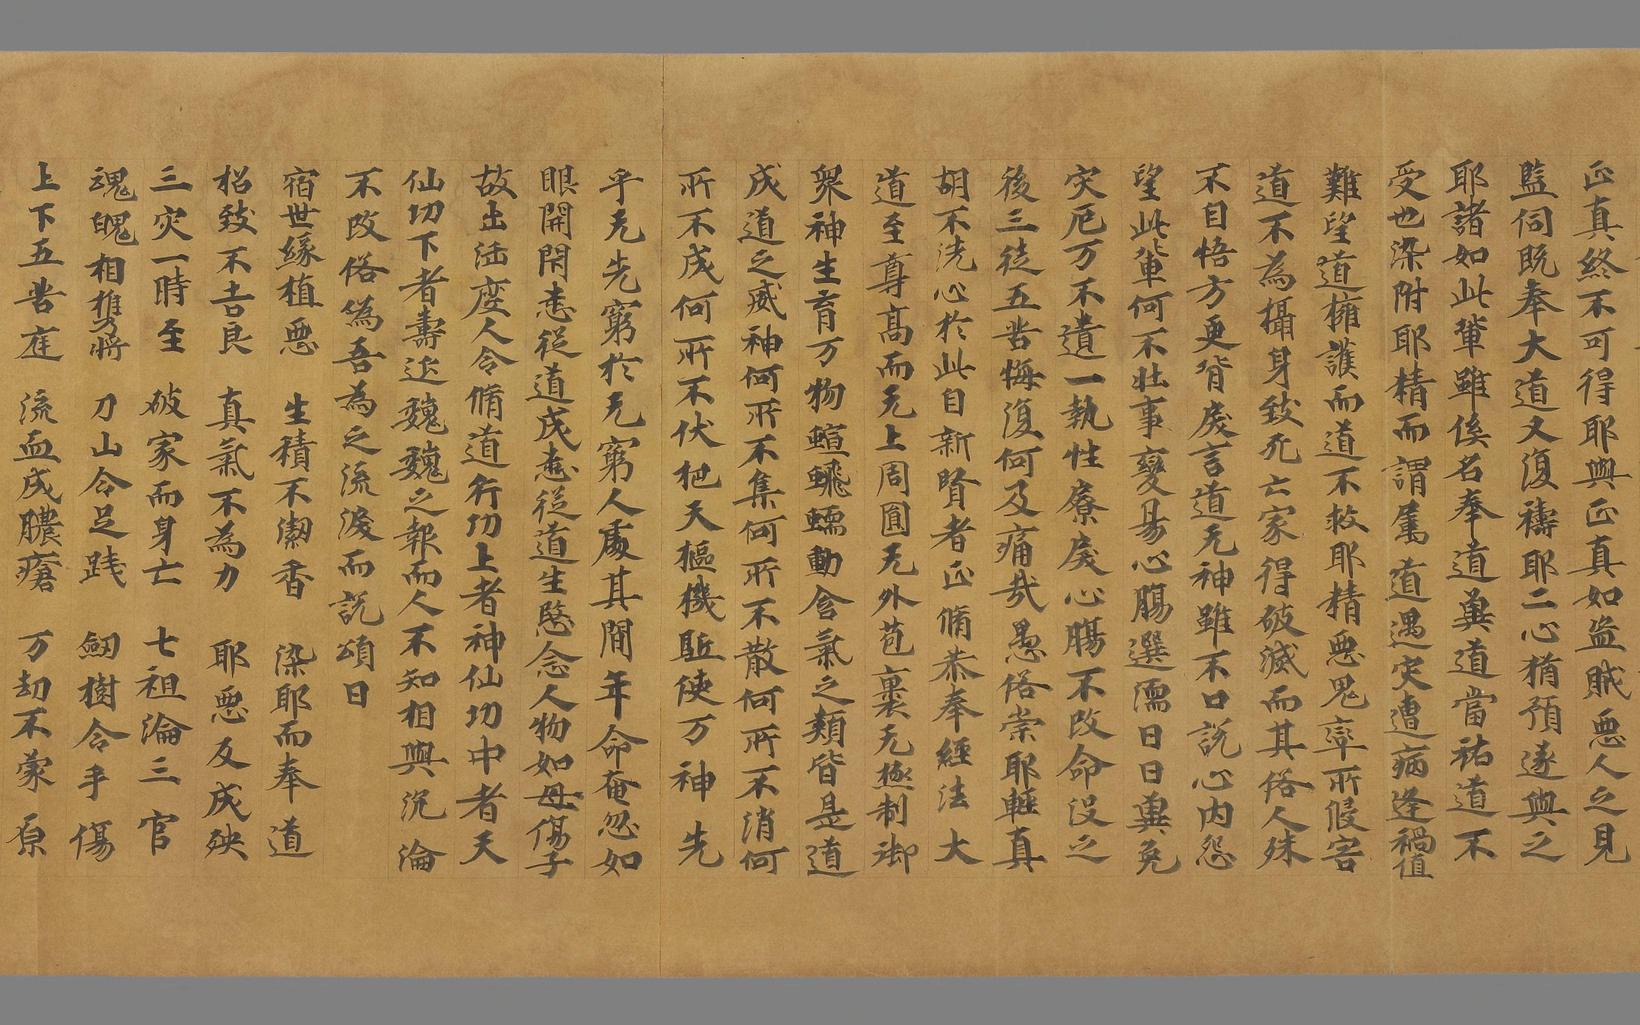 正真終不可得耶與正真如盜賊惡人之見
監伺既奉大道又復禱耶二心猶預遂與之
耶諸如此輩雖俟名奉道兾道當祐道不
受也染附耶精而謂篤道遇灾遭病逢禍值
難望道擁護而道不救耶精惡鬼寧所假害
道不為攝身致死亡家得破滅而其俗人殊
不自悟方更背戾言道无神雖不口說心内怨
望此輩何不壯事變易心膓選濡日日兾免
灾厄万不遺一執性寮戾心膓不改命没之
後三徒五苦悔復何及痛哉愚俗崇耶輕真
胡不洗心於此自新賢者正脩恭奉經法大
道至尊高而无上周圎无外苞裹无極制御
衆神生育万物蝖蜚蠕動含氣之類皆是道
成道之威神何所不集何所不散何所不消何
所不成何所不伏杷天樞機駈使万神先
乎无先窮於无窮人處其間年命奄忽如
眼開閇恚從道成恚從道生愍念人物如母傷子
故出法度人令脩道行功上者神仙功中者天
仙功下者壽延巍巍之報而人不知相與沉淪
不改俗偽吾為之流淚而說頌曰
宿世緣植惡 生積不潔香 染耶而奉道
招致不吉良 真氣不為力 耶惡反成殃
三灾一時至 破家而身亡 七祖淪三官
魂魄相㩦將 刀山令足踐 劒樹令手傷
上下五苦庭 流血成膿瘡 万劫不蒙原